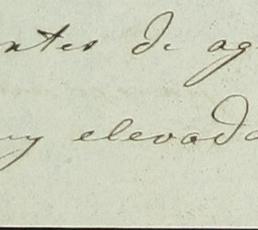 ntes de ag
uy elevada